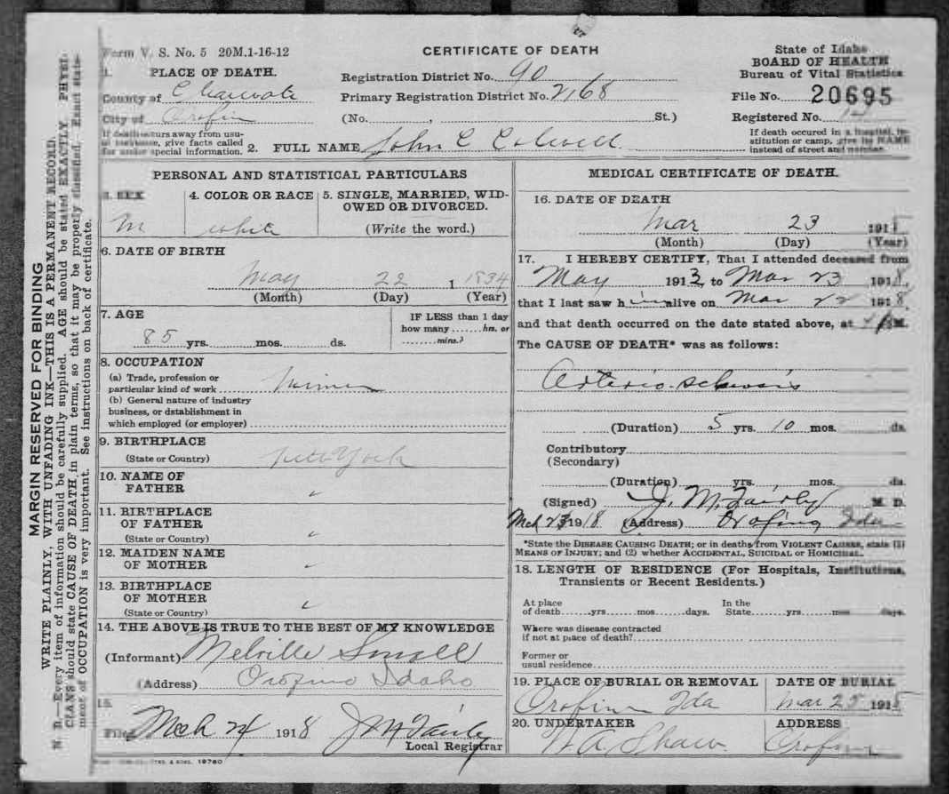 Form V. S. No. 5 20M.1-16-12
CERTIFICATE OF DEATH
State of Idaho
BOARD OF HEALTH
Bureau of Vital Statistics
1. PLACE OF DEATH.
County of
City of Orofin
If death occurs away from usual residence, give facts called for under special information.
Registration District No. 90
Primary Registration District No. 2168
(No. , St.)
File No. 20695
Registered No.
If death occured in a hospital, institution or camp, give its NAME instead of street and number.
2. FULL NAME John C Colwell
PERSONAL AND STATISTICAL PARTICULARS
3. SEX
M
4. COLOR OR RACE
white
5. SINGLE, MARRIED, WIDOWED OR DIVORCED.
(Write the word.)
6. DATE OF BIRTH
May 22 1834
(Month) (Day) (Year)
7. AGE
85 yrs. mos. ds.
IF LESS than 1 day
how many hrs. or
mins.?
8. OCCUPATION
(a) Trade, profession or
particular kind of work miner
(b) General nature of industry
business, or dstablishment in
which employed (or employer)
9. BIRTHPLACE
(State or Country) New York
10. NAME OF
FATHER
11. BIRTHPLACE
OF FATHER
(State or Country)
12. MAIDEN NAME
OF MOTHER
13. BIRTHPLACE
OF MOTHER
(State or Country)
14. THE ABOVE IS TRUE TO THE BEST OF MY KNOWLEDGE
(Informant) Melville Small
(Address) Orofino Idaho
15.
Filed Mch 24 1918 J M Fairly
Local Registrar
MEDICAL CERTIFICATE OF DEATH.
16. DATE OF DEATH
Mar 23 191
(Month) (Day) (Year)
17. I HEREBY CERTIFY, That I attended deceased from
May 1913 to Mar 23 1918,
that I last saw him alive on Mar 22 1918
and that death occurred on the date stated above, at M.
The CAUSE OF DEATH* was as follows:
Arterio-
(Duration) 5 yrs. 10 mos. ds.
Contributory
(Secondary)
(Duration) yrs. mos. ds.
(Signed) J. M. Fairly M. D.
Mch 23 1918 (Address) Orofino Ida
*State the DISEASE CAUSING DEATH; or in deaths from VIOLENT CAUSES, state (1)
MEANS OF INJURY; and (2) whether ACCIDENTAL, SUICIDAL or HOMICIDAL.
18. LENGTH OF RESIDENCE (For Hospitals, Institutions,
Transients or Recent Residents.)
At place
of death yrs. mos. days.
In the
State yrs. mos. days.
Where was disease contracted
if not at place of death?
Former or
usual residence
19. PLACE OF BURIAL OR REMOVAL
Orofino Ida
DATE OF BURIAL
Mar 25 191
20. UNDERTAKER
W A Shaw
ADDRESS
Orofino
MARGIN RESERVED FOR BINDING
WRITE PLAINLY, WITH UNFADING INK—THIS IS A PERMANENT RECORD.
N. B.—Every item of information should be carefully supplied. AGE should be stated EXACTLY. PHYSI-
CIANS should state CAUSE OF DEATH in plain terms, so that it may be properly classified. Exact state-
ment of OCCUPATION is very important. See instructions on back of certificate.